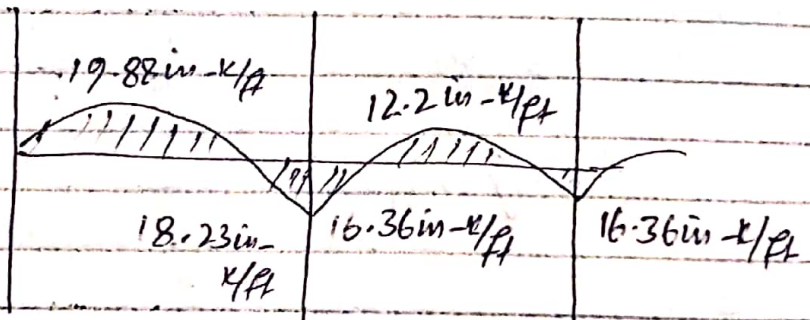 19.88 in-k/ft
12.2 in-k/ft
18.23 in-
k/ft
16.36 in-k/ft
16.36 in-k/ft